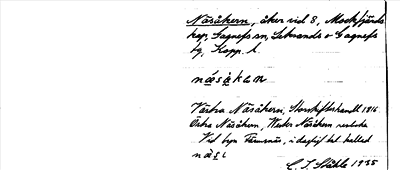 Näsåkern, åker vid 8, Mockfjärds
kap, Gagnefs sn, Leksands o Gagnefs
tg, Kopp. l.
näsåkȩn
Västra Näsåkern, Storskifteshandl 1816
Östra Näsåkern, Wester Näsåkern
Vid byn, i dagligt tal kallad
C. I. Ståhle 1935